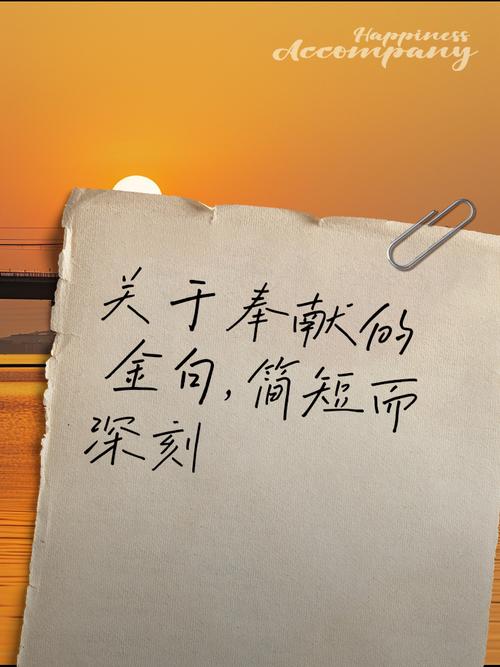 Happiness
Accompany
关于奉献的
金句,简短而
深刻